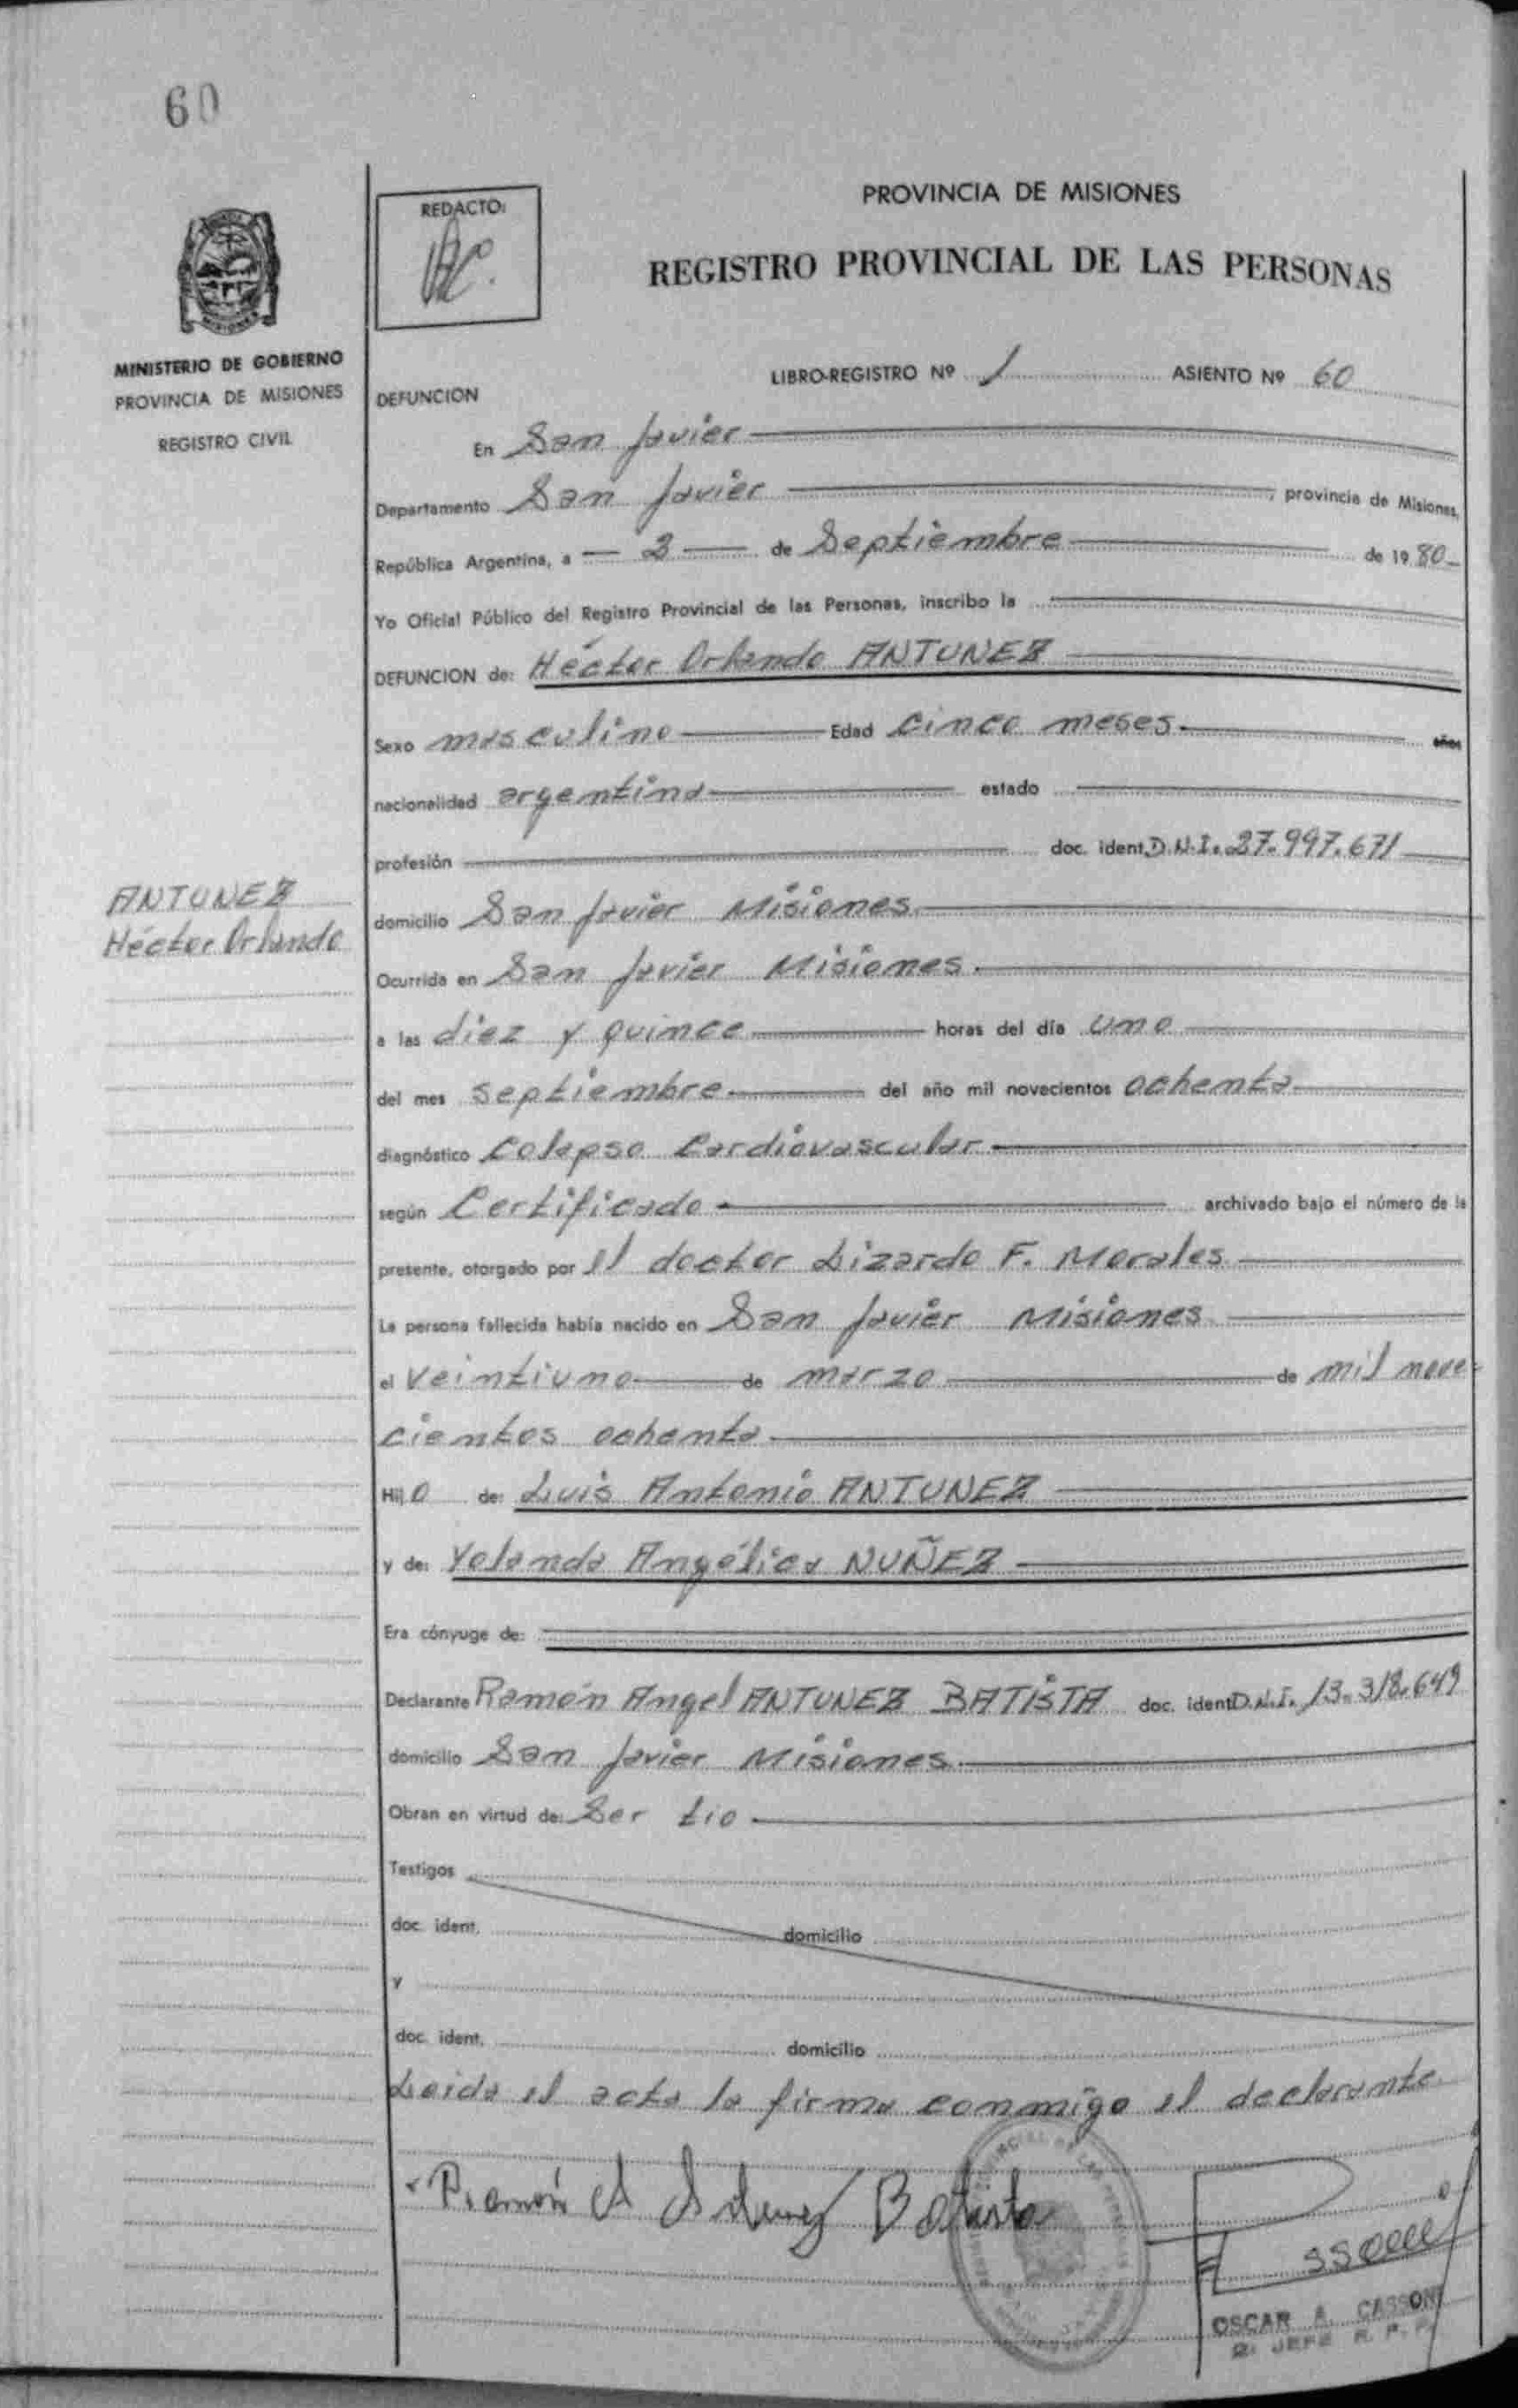 60
REDACTO:
PROVINCIA DE MISIONES
REGISTRO PROVINCIAL DE LAS PERSONAS
MINISTERIO DE GOBIERNO
PROVINCIA DE MISIONES
REGISTRO CIVIL
LIBRO-REGISTRO Nº 1 ASIENTO Nº 60
DEFUNCION
En San Javier
Departamento San Javier, provincia de Misiones,
República Argentina, a 2 de Septiembre de 1980
Yo Oficial Público del Registro Provincial de las Personas, inscribo la
DEFUNCION de: Héctor Orlando ANTUNEZ
Sexo masculino Edad cinco meses años
nacionalidad argentina estado
profesión doc. ident. D.N.I. 27.997.671
ANTUNEZ
Héctor Orlando
domicilio San Javier Misiones
Ocurrida en San Javier Misiones.
a las diez y quince horas del día uno
del mes septiembre del año mil novecientos ochenta
diagnóstico Colapso Cardiovascular
según Certificado archivado bajo el número de la
presente, otorgado por el doctor Lizardo F. Morales
La persona fallecida había nacido en San Javier Misiones
el veintiuno de marzo de mil nove-
cientos ochenta
Hijo de: Luis Antonio ANTUNEZ
y de: Yolanda Angélica NUÑEZ
Era cónyuge de:
Declarante Ramón Angel ANTUNEZ BATISTA doc. ident D.N.I. 13.318.649
domicilio San Javier Misiones
Obran en virtud de: Ser tio
Testigos
doc. ident. domicilio
y
doc. ident. domicilio
Leida el acta la firma conmigo el declarante
Ramón A Antunez Batista
OSCAR A. CASSONI
2. JEFE R. P. P.